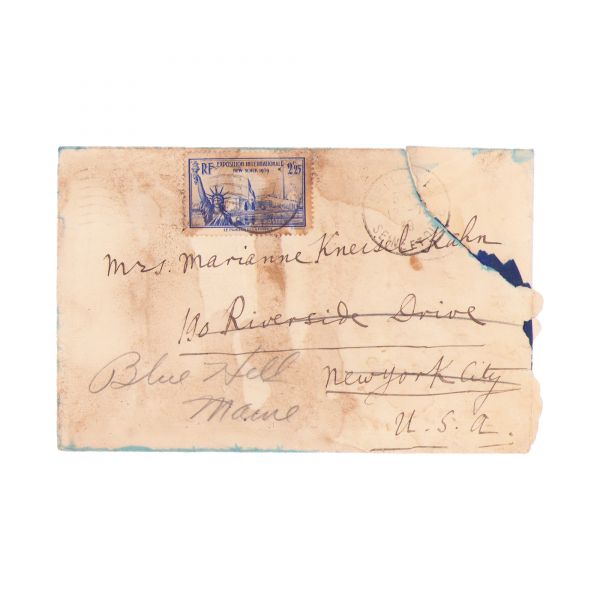 RF EXPOSITION INTERNATIONALE 2f25
NEW YORK 1939
Mrs. Marianne Kneisel-Kahn
190 Riverside Drive
New York City
U. S. A.
Blue Hill
Maine